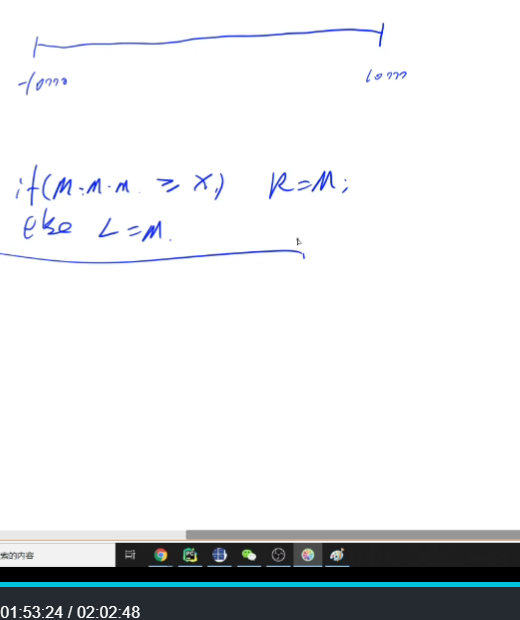 -10000
10000
if(M·M·M ≥ X) R=M;
else L=M.
索的内容
01:53:24 / 02:02:48